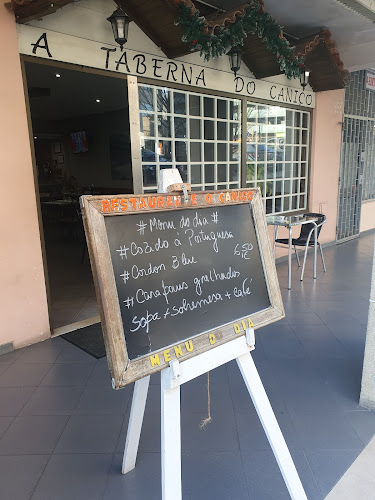 A TABERNA DO CANIÇO
RESTAURANTE O CANIÇO
# Menu do dia #
# Cozido à Portuguesa
# Cordon Bleu
6,50
# Carapaus grelhados
Sopa + sobremesa + café
MENU D DIA